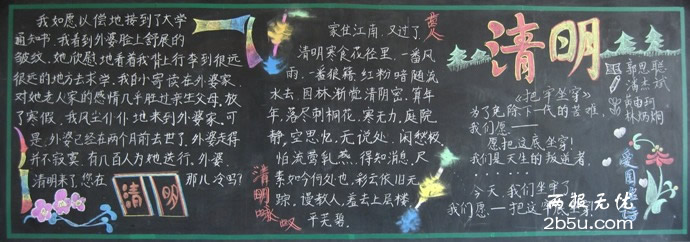 我如愿以偿地接到了大学
通知书,我看到外婆脸上舒展的
皱纹,她欣慰地看着我背上行李到很远
很远的地方去求学。我自小寄读在外婆家
对她老人家的感情几乎胜过亲生父母,放
了寒假,我风尘仆仆地来到外婆家,可
是,外婆已经在两个月前去世了,外婆走得
并不寂寞,有几百人为她送行,外婆,
清明来了,您在
那儿冷吗?
清明
家住江南,又过了
清明寒食花径里,一番风
雨,一番狼籍,红粉暗随流
水去,园林渐觉清阴密,算年
年,落尽刺桐花,寒无力,庭院
静,空思忆,无说处,闲愁极,
怕流莺乳燕,得知消息,尺
素如今何处也,彩云依旧无
踪,慢教人,羞去上层楼,
平芜碧。
清明
清明
《把牢坐穿》
为了免除下一代的苦难,
我们愿——
愿把这底坐穿!
我们是天生的叛逆者,
......
今天,我们坐牢了,
我们愿——把这牢底坐穿!
郭思聪
林炳炯
爱国
两报无优
2b5u.com